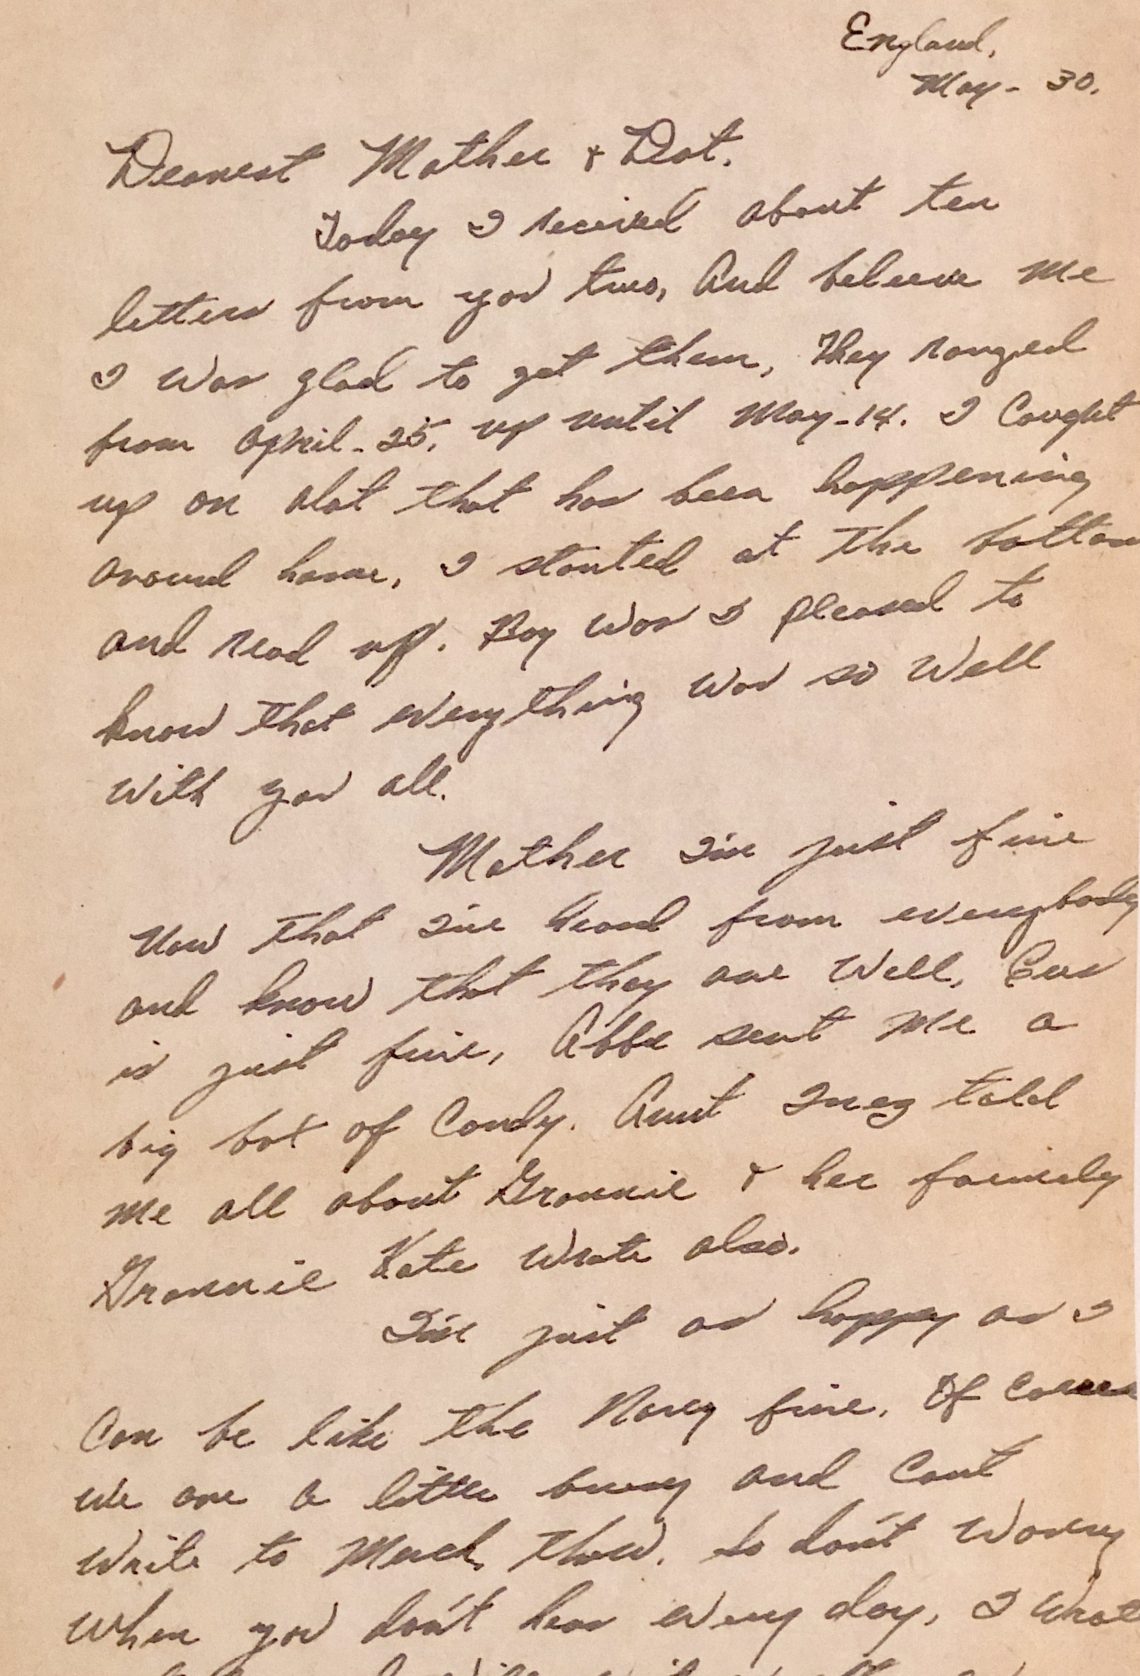 England,
May - 30.
Dearest Mother & Dot.
Today I received about ten
letters from you two, And beleeve me
I was glad to get them, They ranged
from April - 25. up until May - 14. I Caught
up on alot that has been happening
around home, I started at the bottom
and read up. Boy was I pleased to
know that everything was so well
with you all.
Mother I'm just fine
Now that I've heard from everybody
and know that they are well,
is just fine, sent me a
big box of Candy. Aunt Inez told
me all about Grannie & her famiely
Grannie Kate wrote also.
I'm just as happy as I
Can be like the Navy fine. Of
we are a little busey and Cant
write to Much, thow. So don't worrey
when you don't hear every day, I wrote